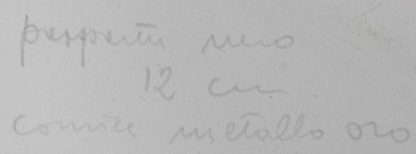 passpartu nero
12 cm
cornice metallo oro